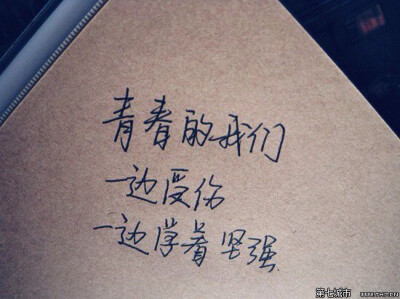 青春的我们
一边受伤
一边学着坚强
第七城市